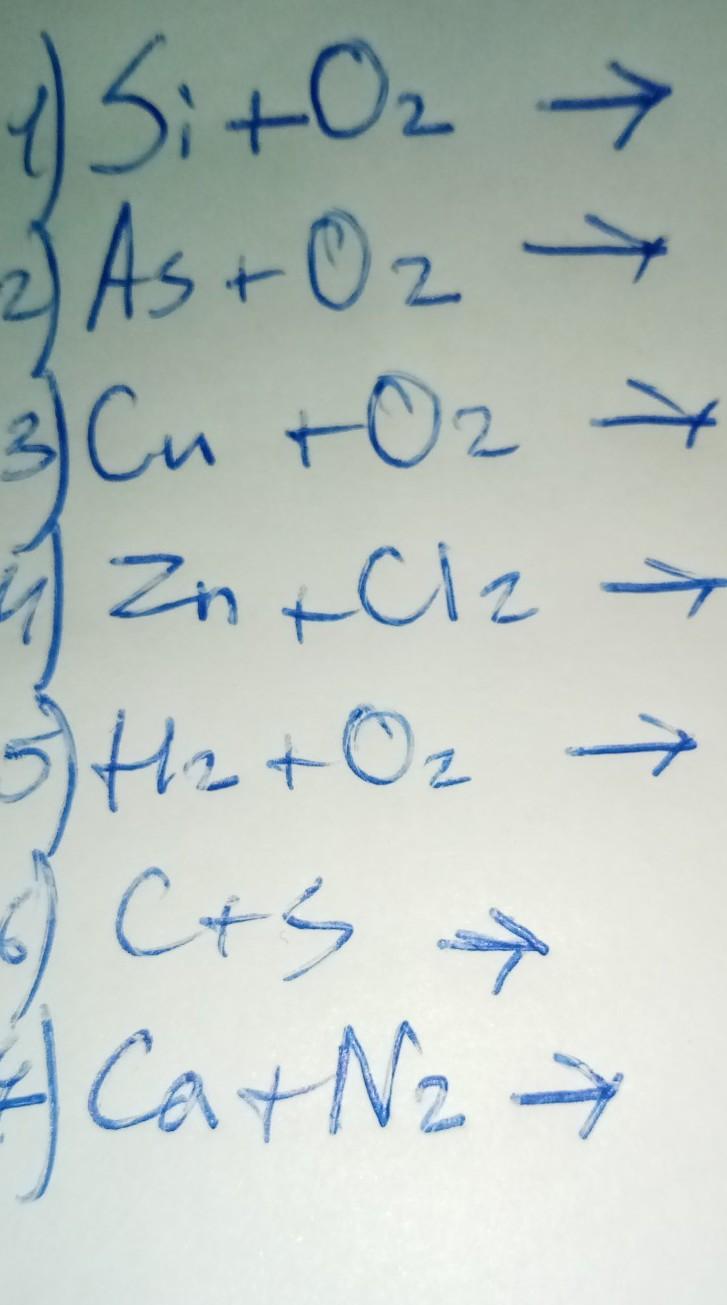 1) Si + O2 →
2) As + O2 →
3) Cu + O2 →
4) Zn + Cl2 →
5) H2 + O2 →
6) C + S →
7) Ca + N2 →